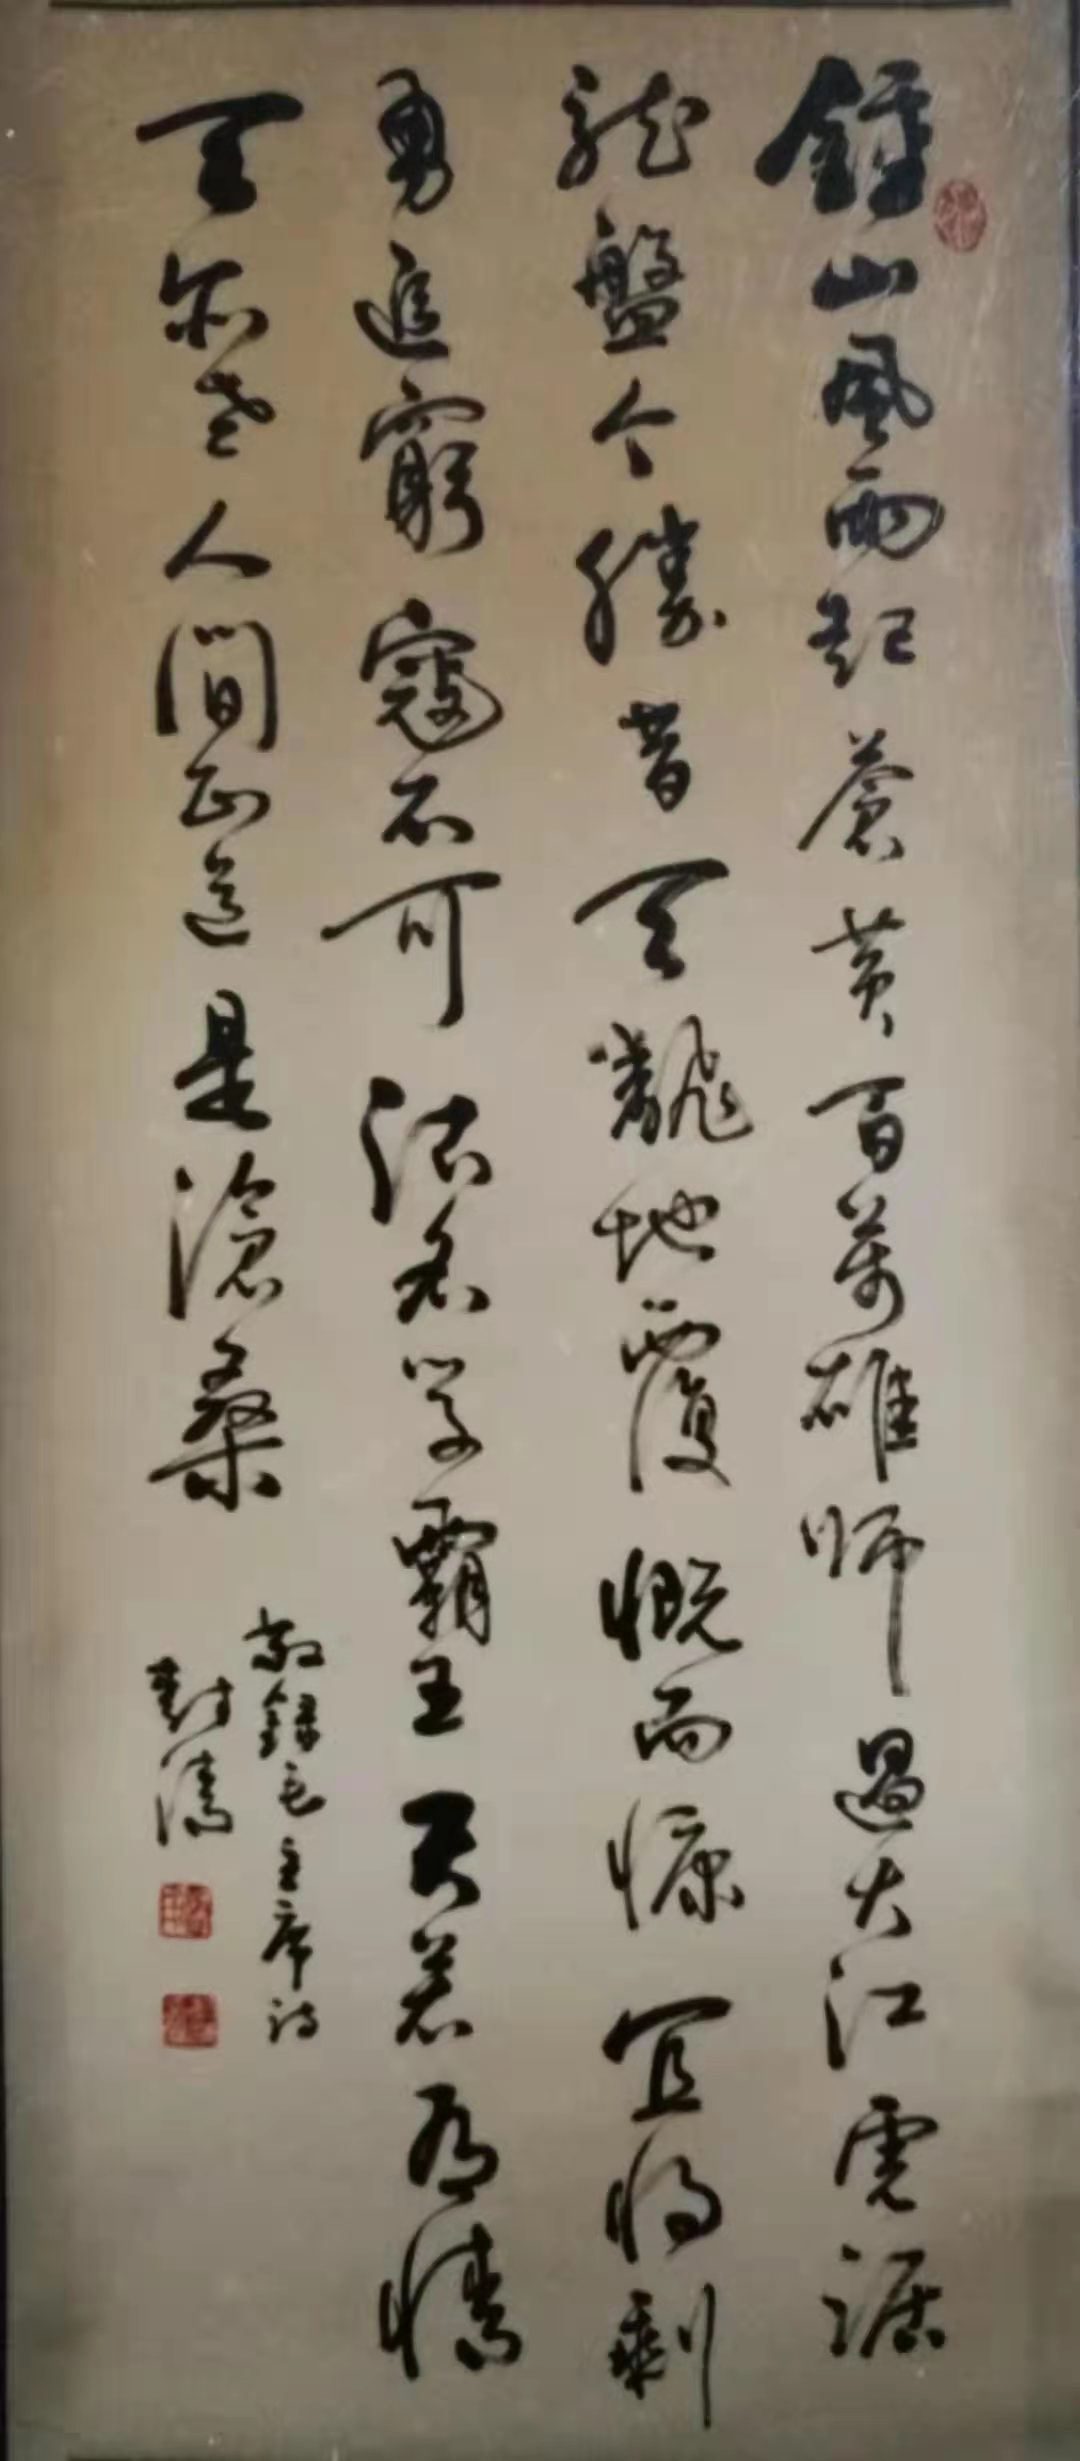 鍾山風雨起蒼黃百萬雄師過大江虎踞
龍盤今勝昔天飜地覆慨而慷宜將剩
勇追窮寇不可沽名學霸王天若有情
天亦老人間正道是滄桑
敬錄毛主席詩
封